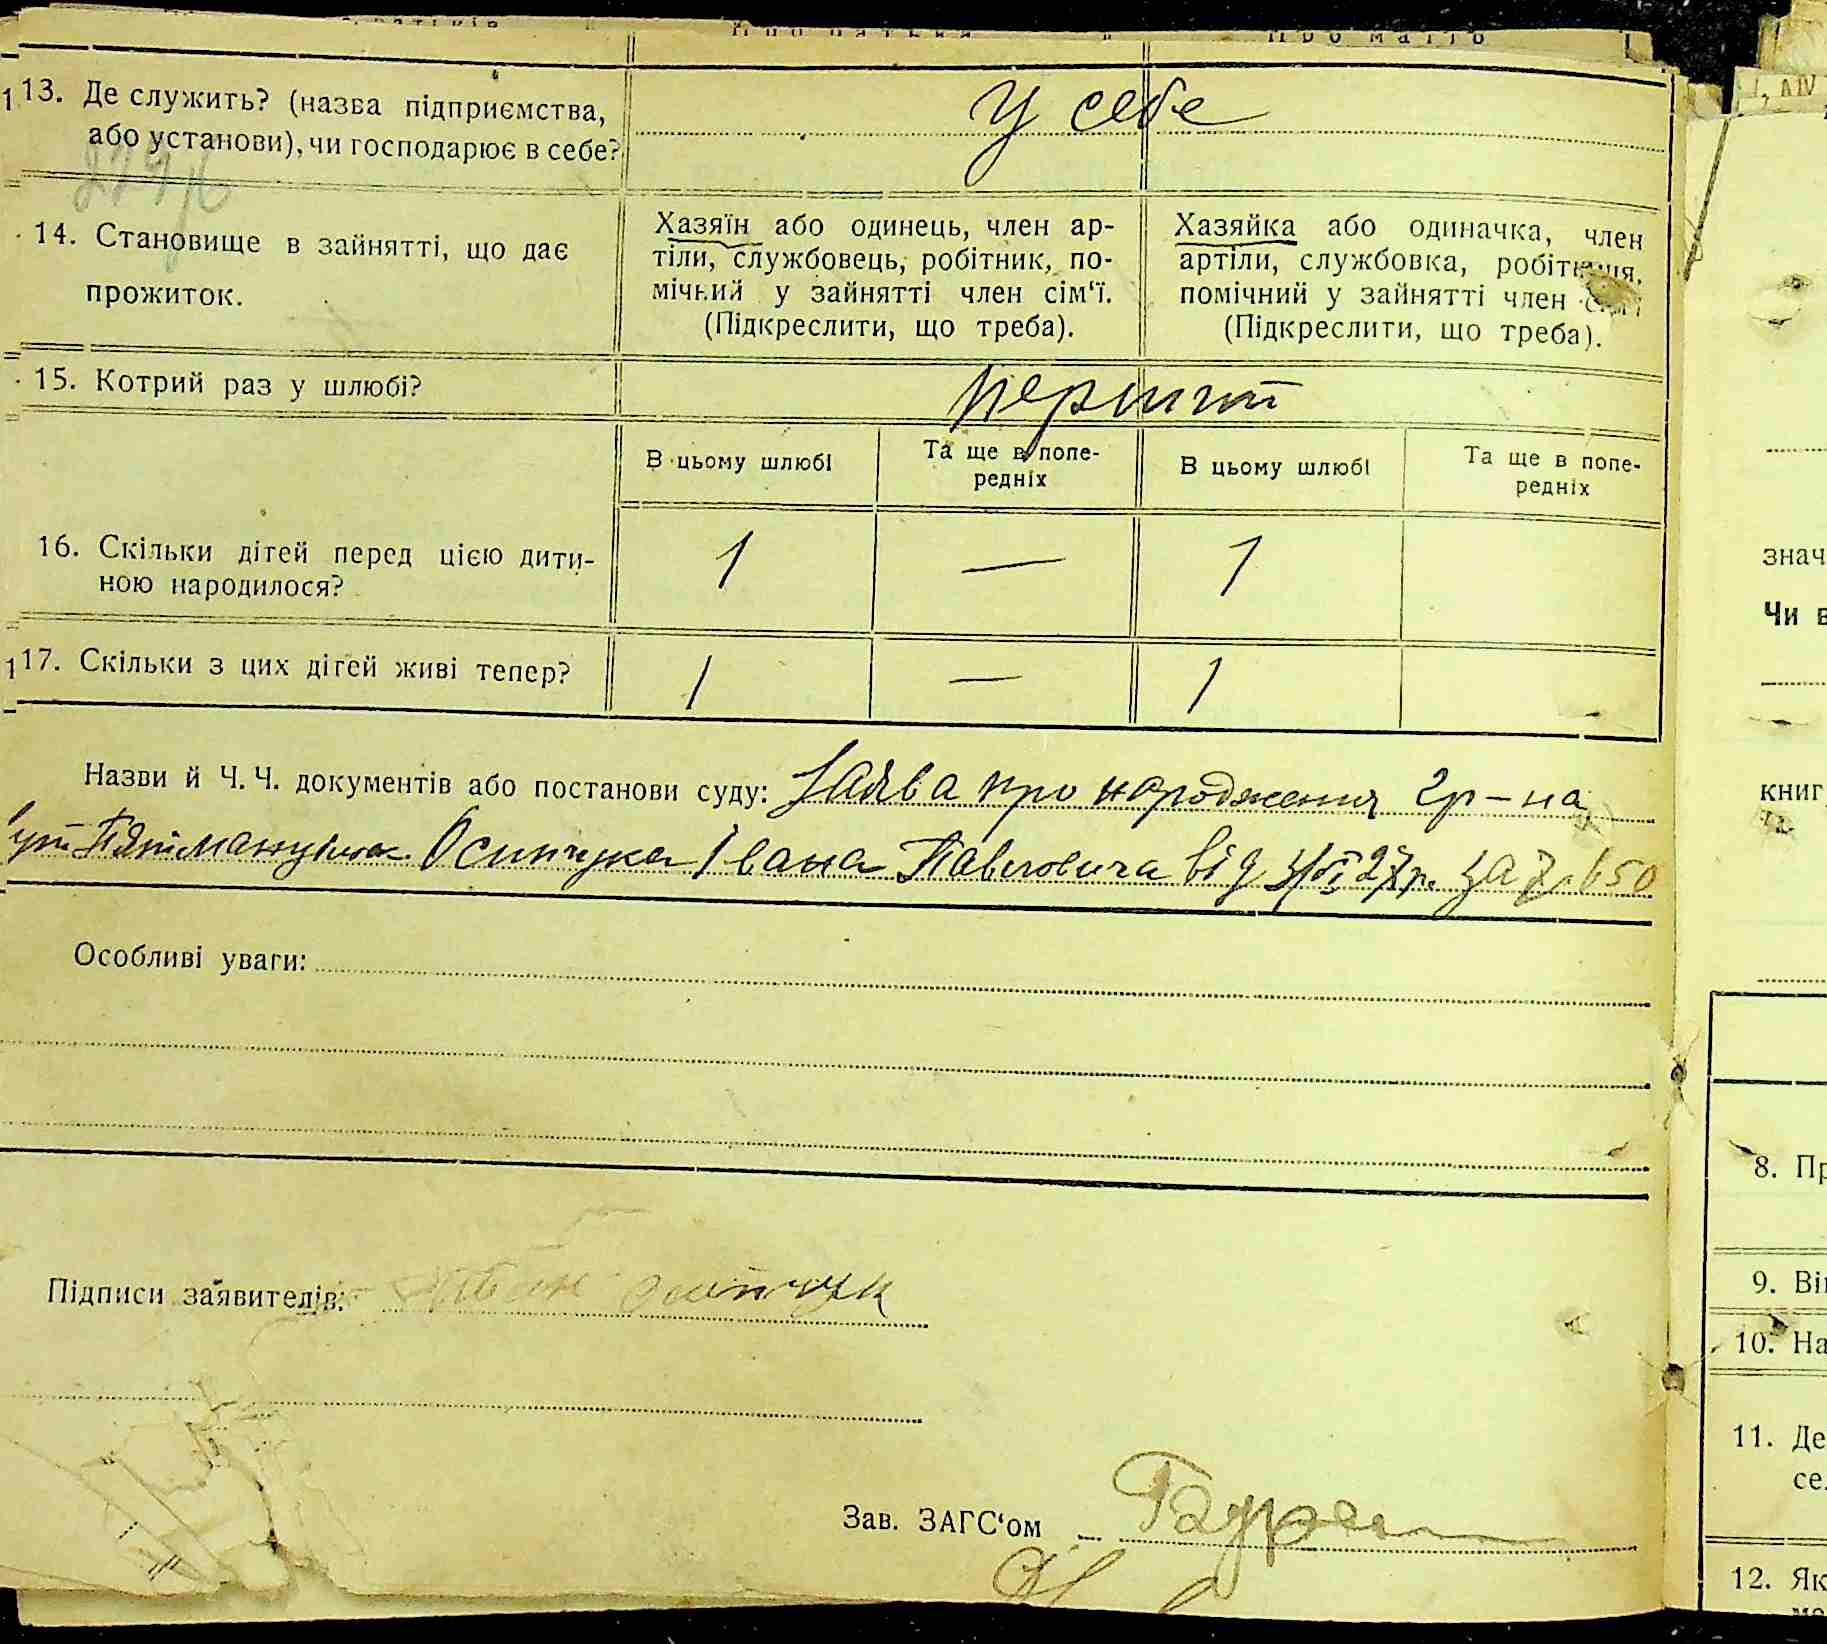 Про батька Про матір
13. Де служить? (назва підприємства, у себе
або установи), чи господарює в себе?
14. Становище в зайнятті, що дає
прожиток.
Хазяїн або одинець, член ар-
тіли, службовець, робітник, по-
мічний у зайнятті член сім'ї.
(Підкреслити, що треба).
Хазяйка або одиначка, член
артіли, службовка, робітниця,
помічний у зайнятті член сім'ї
(Підкреслити, що треба).
15. Котрий раз у шлюбі? перший
В цьому шлюбі
Та ще в попе-
редніх
В цьому шлюбі
Та ще в попе-
редніх
16. Скільки дітей перед цією дити- 1 — 1
ною народилося?
17. Скільки з цих дітей живі тепер? 1 — 1
Назви й Ч. Ч. документів або постанови суду: Заява про народження гр-на
Осипчука Івана Павловича від 27р. за 650
Особливі уваги:
Підписи заявителів: Іван Осипчук
Зав. ЗАГС'ом
знач
Чи в
книг
8. Пр
9. Ві
10. На
11. Де
се
12. Як